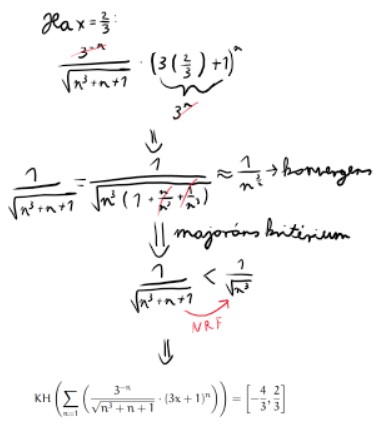 Ha x = 2/3:
3^-n / √(n³+n+1) · (3(2/3)+1)^n
3^n
⇓
1/√(n³+n+1) = 1/√(n³(1 + n/n³ + 1/n³)) ≈ 1/n^(3/2) → konvergens
⇓ majoráns kritérium
1/√(n³+n+1) < 1/√n³
NRF
⇓
KH(∑_{n=1} (3^-n / √(n³+n+1) · (3x+1)^n)) = [-4/3, 2/3]